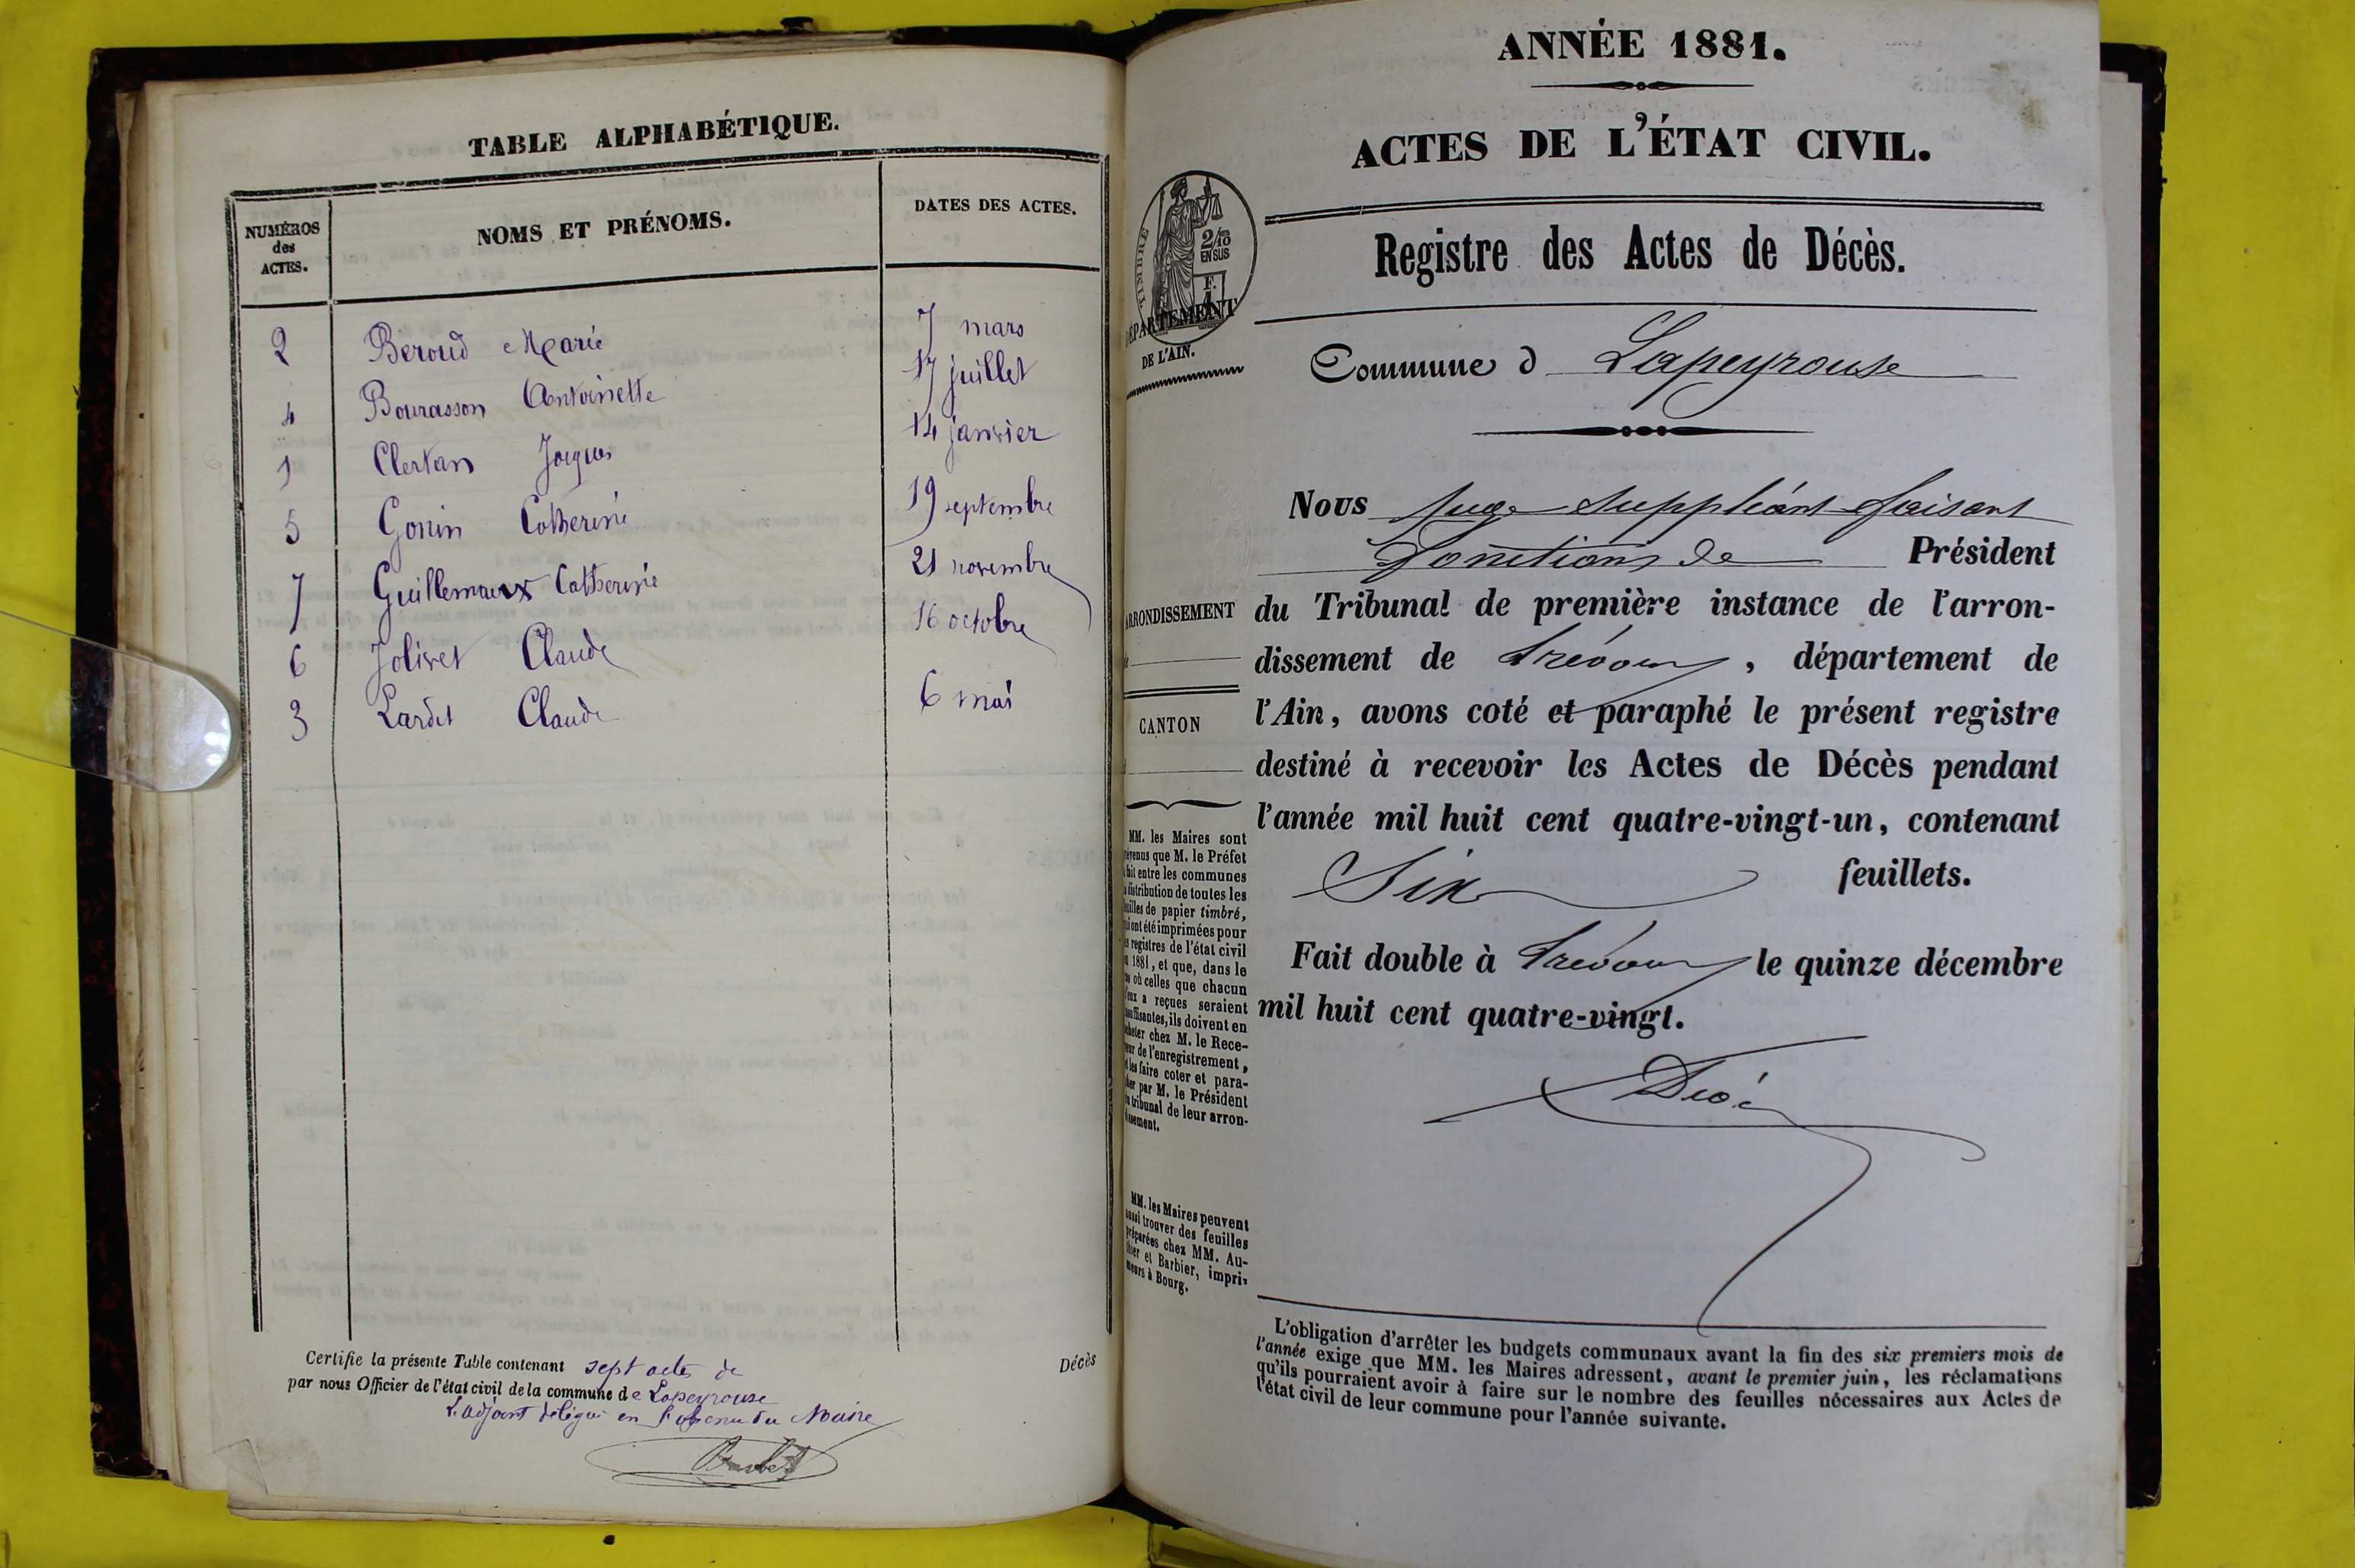 TABLE ALPHABÉTIQUE.
NUMÉROS
des
ACTES.
NOMS ET PRÉNOMS.
DATES DES ACTES.
2 Beroud Marie 7 mars
4 Bourasson Antoinette 17 juillet
1 Clertan Jacques 14 janvier
5 Gonin Catherine 19 septembre
7 Guillemaux Catherine 21 novembre
6 Jolivet Claude 16 octobre
3 Lardet Claude 6 mai
Certifie la présente Table contenant sept actes de Décès
par nous Officier de l'état civil de la commune de Lapeyrouse
L'adjoint délégué en l'absence du Maire
ANNÉE 1881.
ACTES DE L'ÉTAT CIVIL.
TIMBRE
2/10
EN SUS
F.
DÉPARTEMENT
DE L'AIN.
Registre des Actes de Décès.
Commune d Lapeyrouse
Nous Juge Suppléant faisant
fonctions de Président
ARRONDISSEMENT
CANTON
du Tribunal de première instance de l'arron-
dissement de Trévoux, département de
l'Ain, avons coté et paraphé le présent registre
destiné à recevoir les Actes de Décès pendant
l'année mil huit cent quatre-vingt-un, contenant
Six feuillets.
Fait double à Trévoux le quinze décembre
mil huit cent quatre-vingt.
MM. les Maires sont
prévenus que M. le Préfet
a fait entre les communes
la distribution de toutes les
feuilles de papier timbré,
qui ont été imprimées pour
les registres de l'état civil
en 1881, et que, dans le
cas où celles que chacun
d'eux a reçues seraient
insuffisantes, ils doivent en
acheter chez M. le Rece-
veur de l'enregistrement,
et les faire coter et para-
pher par M. le Président
du tribunal de leur arron-
dissement.
MM. les Maires peuvent
aussi trouver des feuilles
préparées chez MM. Au-
thier et Barbier, impri-
meurs à Bourg.
L'obligation d'arrêter les budgets communaux avant la fin des six premiers mois de
l'année exige que MM. les Maires adressent, avant le premier juin, les réclamations
qu'ils pourraient avoir à faire sur le nombre des feuilles nécessaires aux Actes de
l'état civil de leur commune pour l'année suivante.